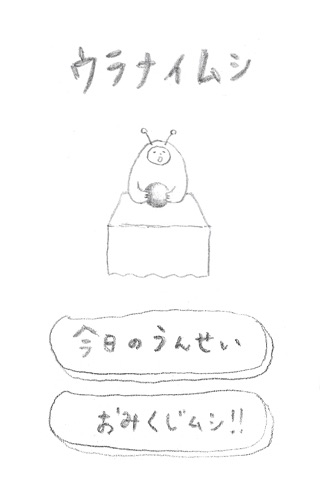 ウラナイムシ
今日のうんせい
おみくじムシ!!